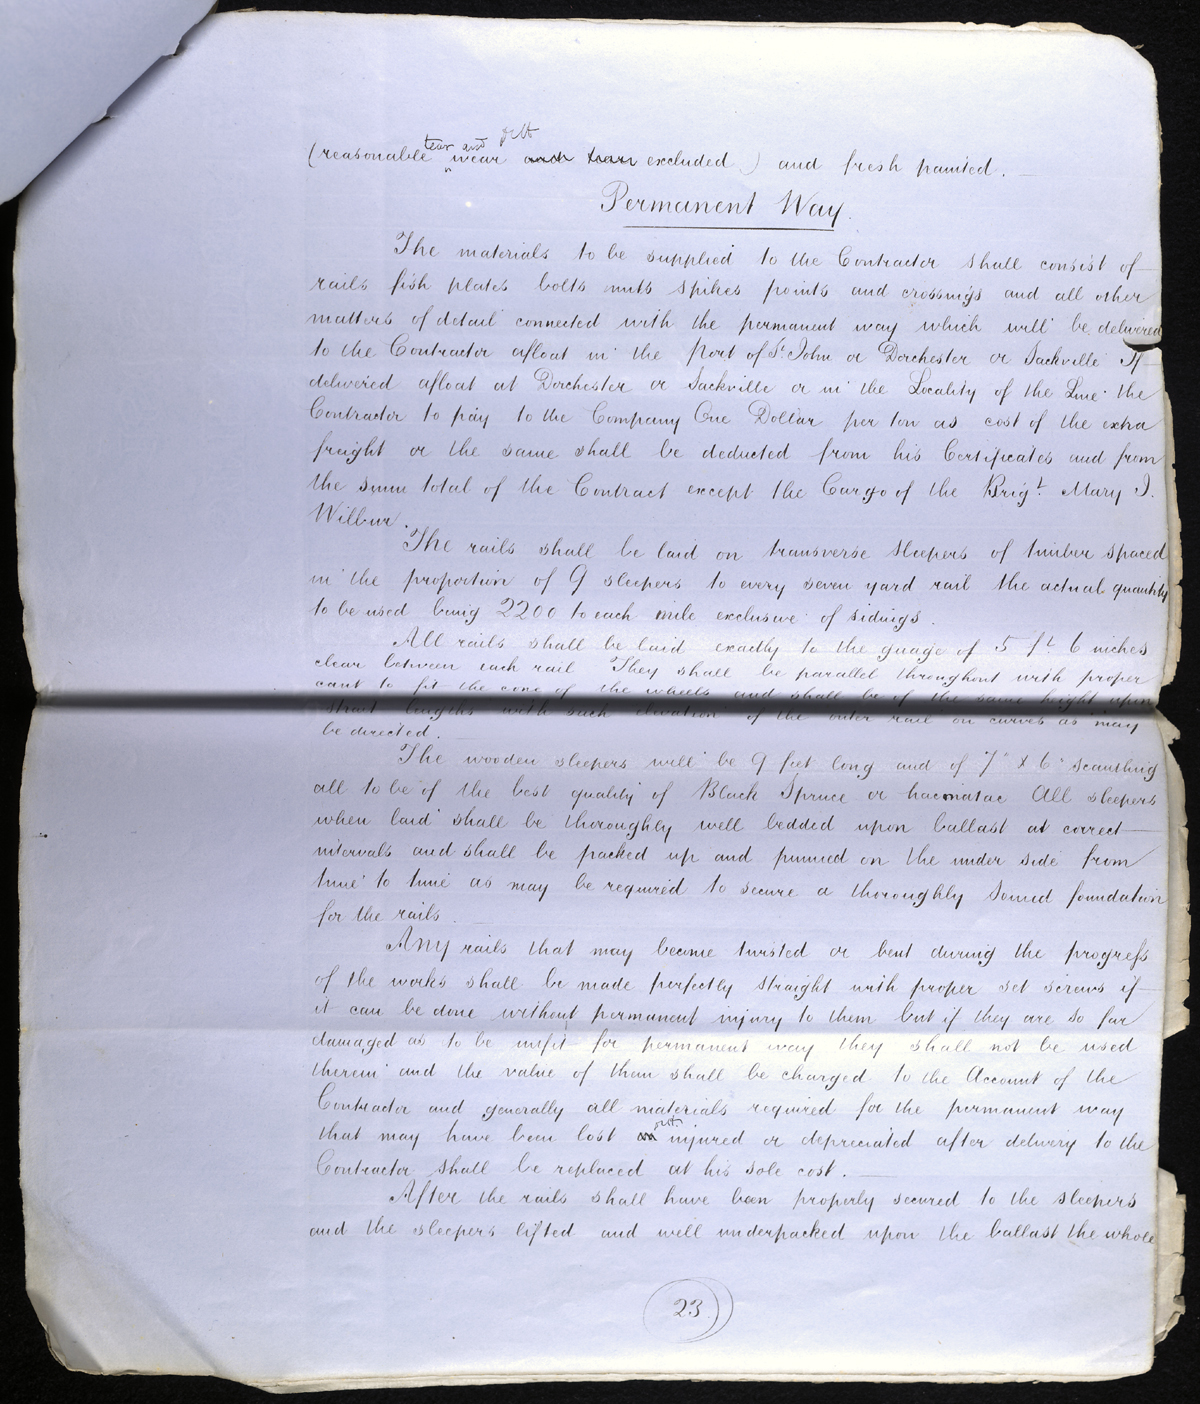 (reasonable tear and wear and tear excluded) and fresh painted.
Permanent Way.
The materials to be supplied to the Contractor shall consist of
rails fish plates bolts nuts spikes points and crossings and all other
matters of detail connected with the permanent way which will be delivered
to the Contractor afloat in the Port of St. John or Dorchester or Sackville If
delivered afloat at Dorchester or Sackville or in the Locality of the Line the
Contractor to pay to the Company One Dollar per ton as cost of the extra
freight or the same shall be deducted from his Certificates and from
the sum total of the Contract except the Cargo of the Brigt. Mary J.
Wilbur.
The rails shall be laid on transverse sleepers of timber spaced
in the proportion of 9 sleepers to every seven yard rail the actual quantity
to be used being 2200 to each mile exclusive of sidings.
All rails shall be laid exactly to the guage of 5 ft. 6 inches
clear between each rail They shall be parallel throughout with proper
cant to fit the cone of the wheels and shall be of the same height upon
strait lengths with such elevation of the outer rail on curves as may
be directed.
The wooden sleepers will be 9 feet long and of 7" x 6" scantling
all to be of the best quality of Black Spruce or hacmatac All sleepers
when laid shall be thoroughly well bedded upon ballast at correct
intervals and shall be packed up and punned on the under side from
time to time as may be required to secure a thoroughly sound foundation
for the rails.
Any rails that may become twisted or bent during the progress
of the works shall be made perfectly straight with proper set screws if
it can be done without permanent injury to them but if they are so far
damaged as to be unfit for permanent way they shall not be used
therein and the value of them shall be charged to the Account of the
Contractor and generally all materials required for the permanent way
that may have been lost injured or depreciated after delivery to the
Contractor shall be replaced at his sole cost.
After the rails shall have been properly secured to the sleepers
and the sleepers lifted and well underpacked upon the ballast the whole
23